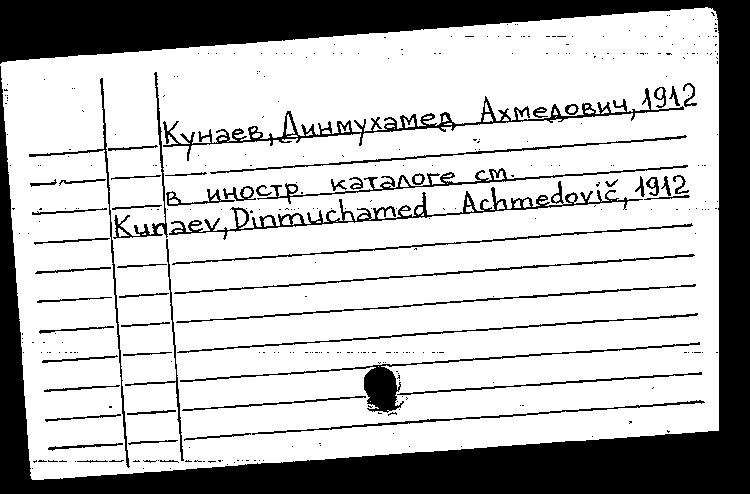 Кунаев, Динмухамед Ахмедович, 1912
в иностр. каталоге см.
Kunaev, Dinmuchamed Achmedovič, 1912